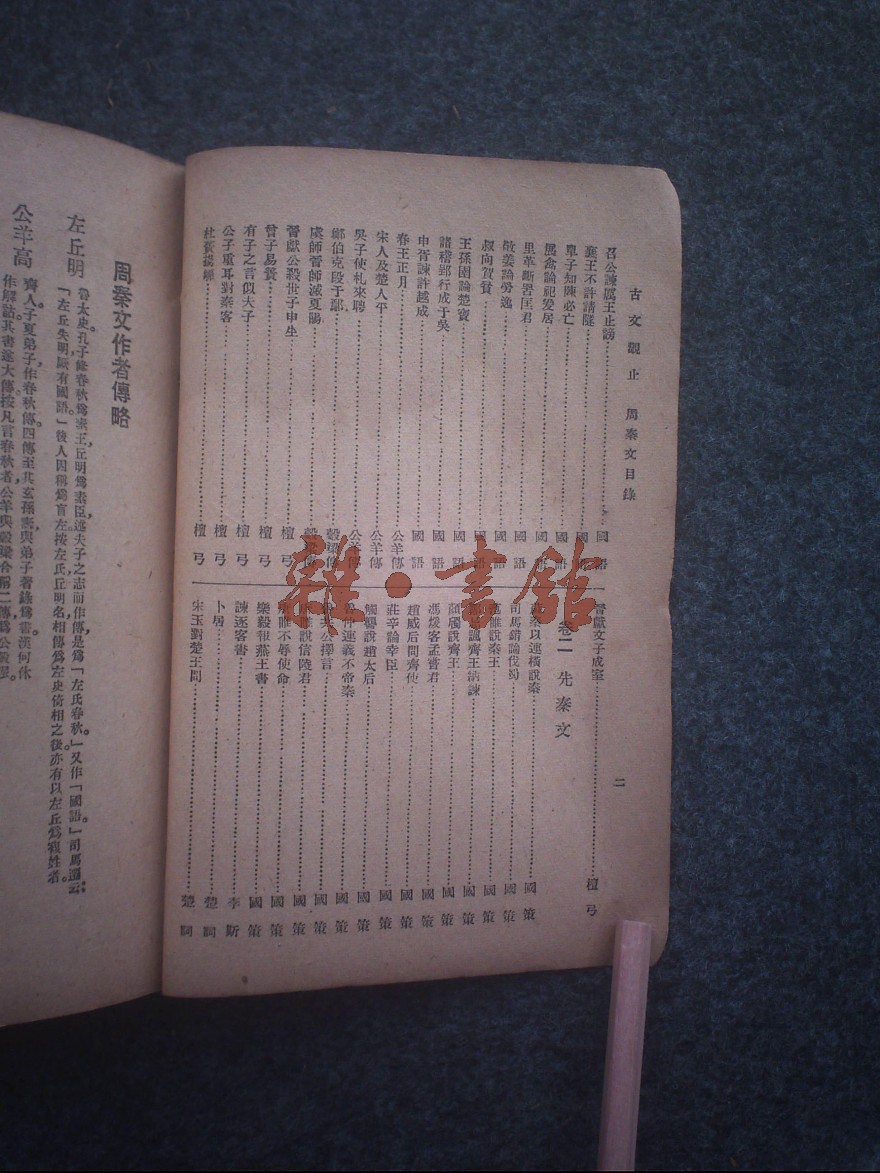 古文觀止 周秦文目錄
召公諫厲王止謗 國語
襄王不許請隧 國語
單子知陳必亡 國語
展禽論祀爰居 國語
里革斷罟匡君 國語
敬姜論勞逸 國語
叔向賀貧 國語
王孫圉論楚寶 國語
諸稽郢行成于吳 國語
申胥諫許越成 國語
春王正月 公羊傳
宋人及楚人平 公羊傳
吳子使札來聘 公羊傳
鄭伯克段于鄢 穀梁傳
虞師晉師滅夏陽 穀梁傳
晉獻公殺世子申生 檀弓
曾子易簀 檀弓
有子之言似夫子 檀弓
公子重耳對秦客 檀弓
杜蕢揚觶 檀弓
晉獻文子成室 檀弓
卷二 先秦文
秦以連橫說秦 國策
司馬錯論伐蜀 國策
睢說秦王 國策
諷齊王納諫 國策
顏斶說齊王 國策
馮煖客孟嘗君 國策
趙威后問齊使 國策
莊辛論幸臣 國策
觸讋說趙太后 國策
魯仲連義不帝秦 國策
共公擇言 國策
睢說信陵君 國策
睢不辱使命 國策
樂毅報燕王書 國策
諫逐客書 李斯
卜居 楚詞
宋玉對楚王問 楚詞
二
周秦文作者傳略
左丘明
魯太史。孔子修春秋爲素王，丘明爲素臣，述夫子之志而作傳，是爲「左氏春秋。」又作「國語。」司馬遷云：
「左丘失明，厥有國語。」後人因稱爲盲左。按左氏丘明名，相傳爲左史倚相之後。亦有以左丘爲複姓者。
公羊高
齊人。子夏弟子。作春秋傳。四傳至其玄孫壽，與弟子著錄爲書。漢何休
作解詁，其書遂大傳。按凡言春秋者，公羊與穀梁合稱二傳，爲公
雜·書館